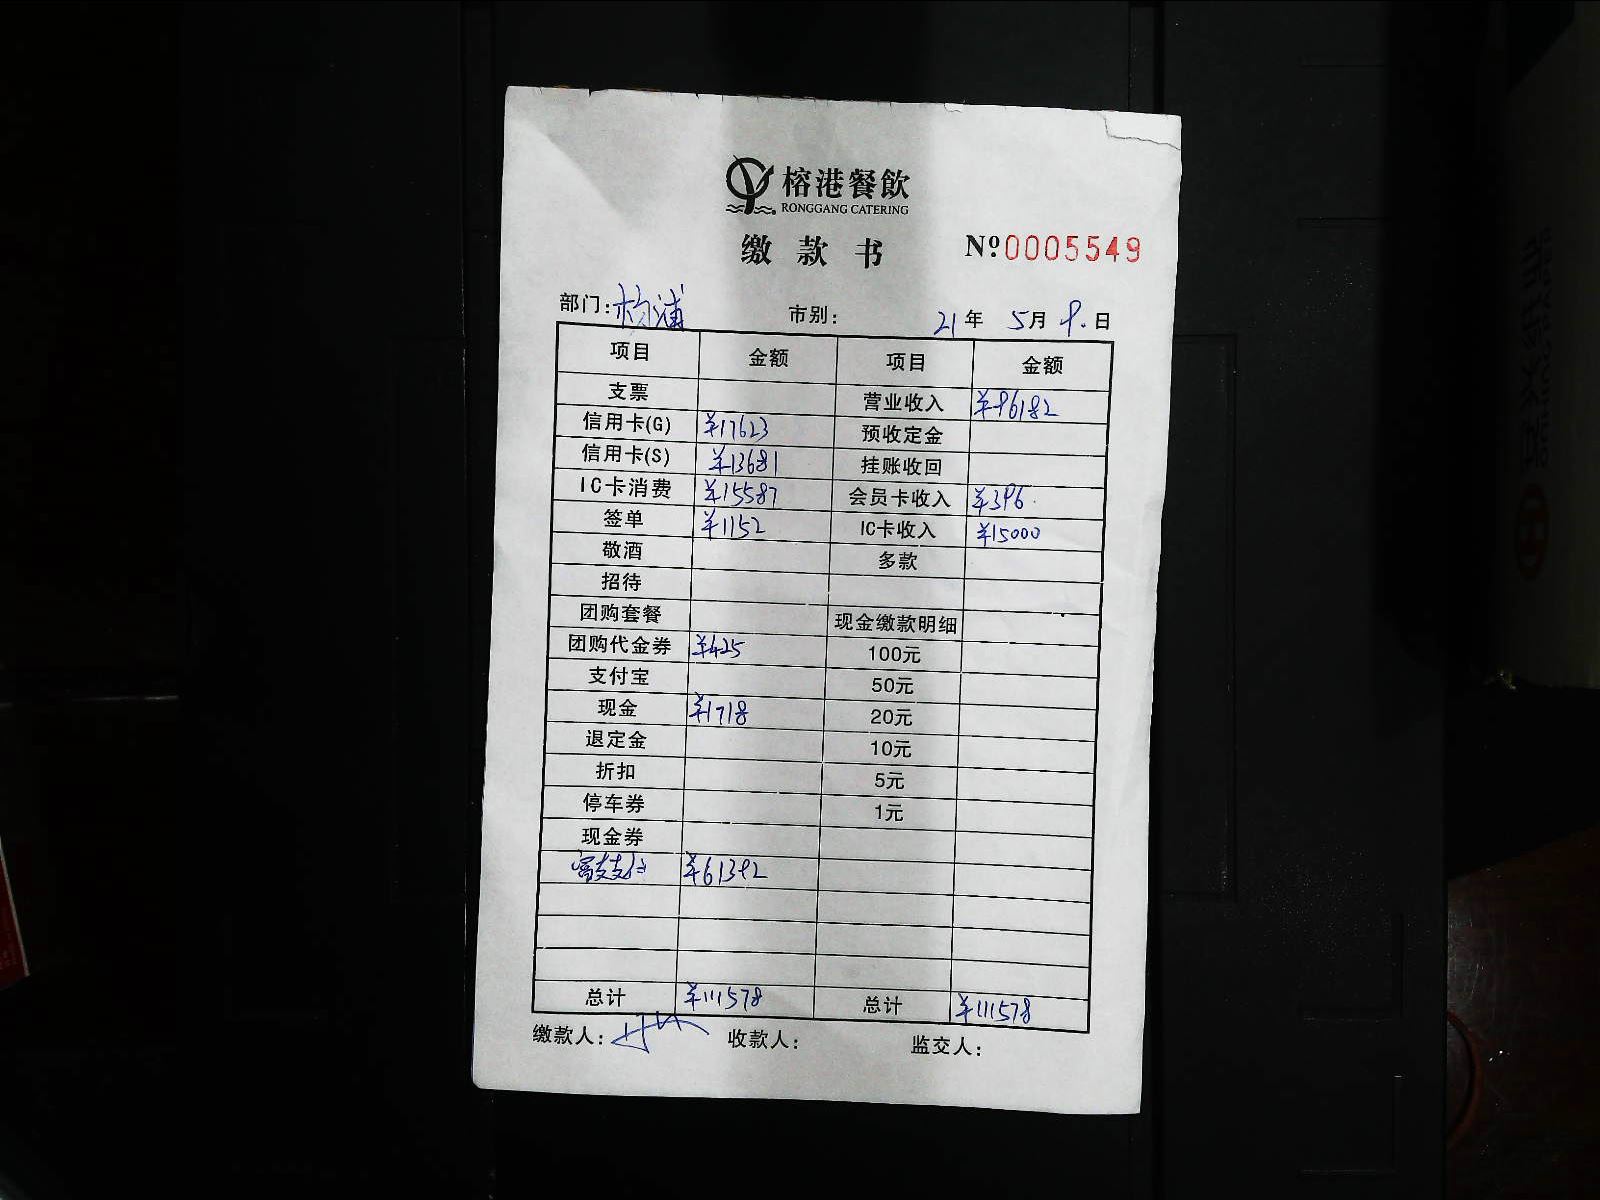 榕港餐飲
RONGGANG CATERING
缴款书 Nº:0005549
部门:杨浦 市别: 21年 5月 9.日
项目 金额 项目 金额
支票 营业收入 ¥96182
信用卡(G) ¥17623 预收定金
信用卡(S) ¥13681 挂账收回
IC卡消费 ¥15587 会员卡收入 ¥396.
签单 ¥1152 IC卡收入 ¥15000
敬酒 多款
招待
团购套餐 现金缴款明细
团购代金券 ¥425 100元
支付宝 50元
现金 ¥1718 20元
退定金 10元
折扣 5元
停车券 1元
现金券
富友支付 ¥61392
总计 ¥111578 总计 ¥111578
缴款人: 收款人: 监交人: